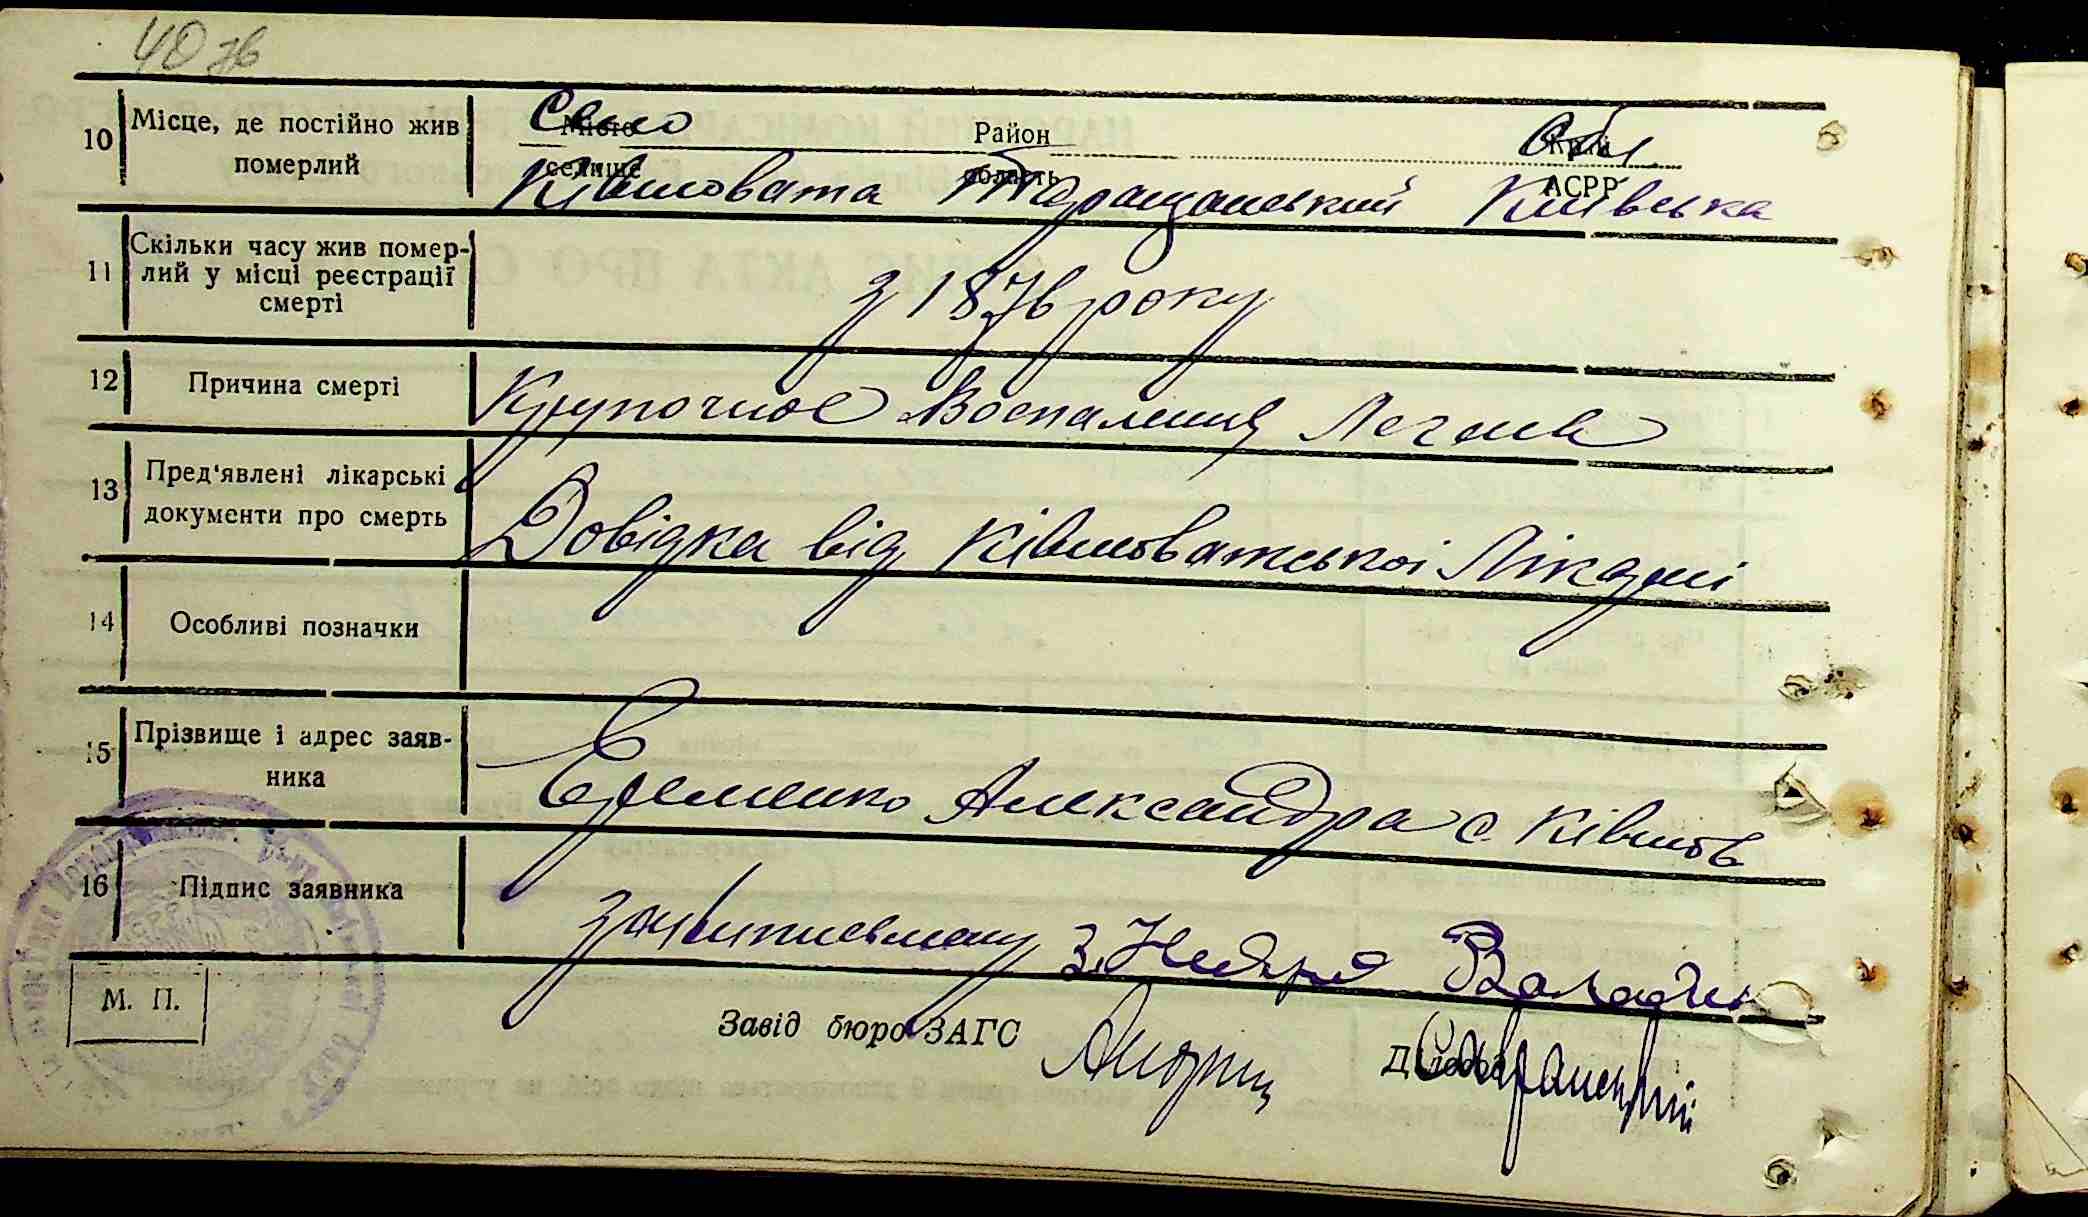 40 зв
10 Місце, де постійно жив померлий
Село Місто селище Район область Обл Край АСРР
Ківшовата Таращанський Київська
11 Скільки часу жив помер-
лий у місці реєстрації
смерті
з 1876 року
12 Причина смерті
Крупочное Воспаления Легких
13 Пред'явлені лікарські
документи про смерть
Довідка від Ківшоватської Лікарні
14 Особливі позначки
15 Прізвище і адрес заяв-
ника
Еременко Александра с Ківшов
16 Підпис заявника
М. П.
Завід бюро ЗАГС
Діловод